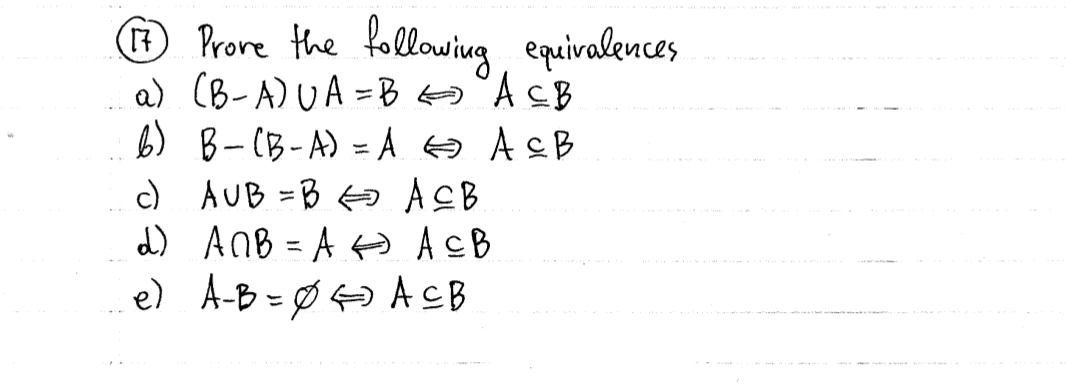 17 Prove the following equivalences
a) (B-A) ∪ A = B ⇔ A ⊆ B
b) B-(B-A) = A ⇔ A ⊆ B
c) A∪B = B ⇔ A ⊆ B
d) A∩B = A ⇔ A ⊆ B
e) A-B = ∅ ⇔ A ⊆ B